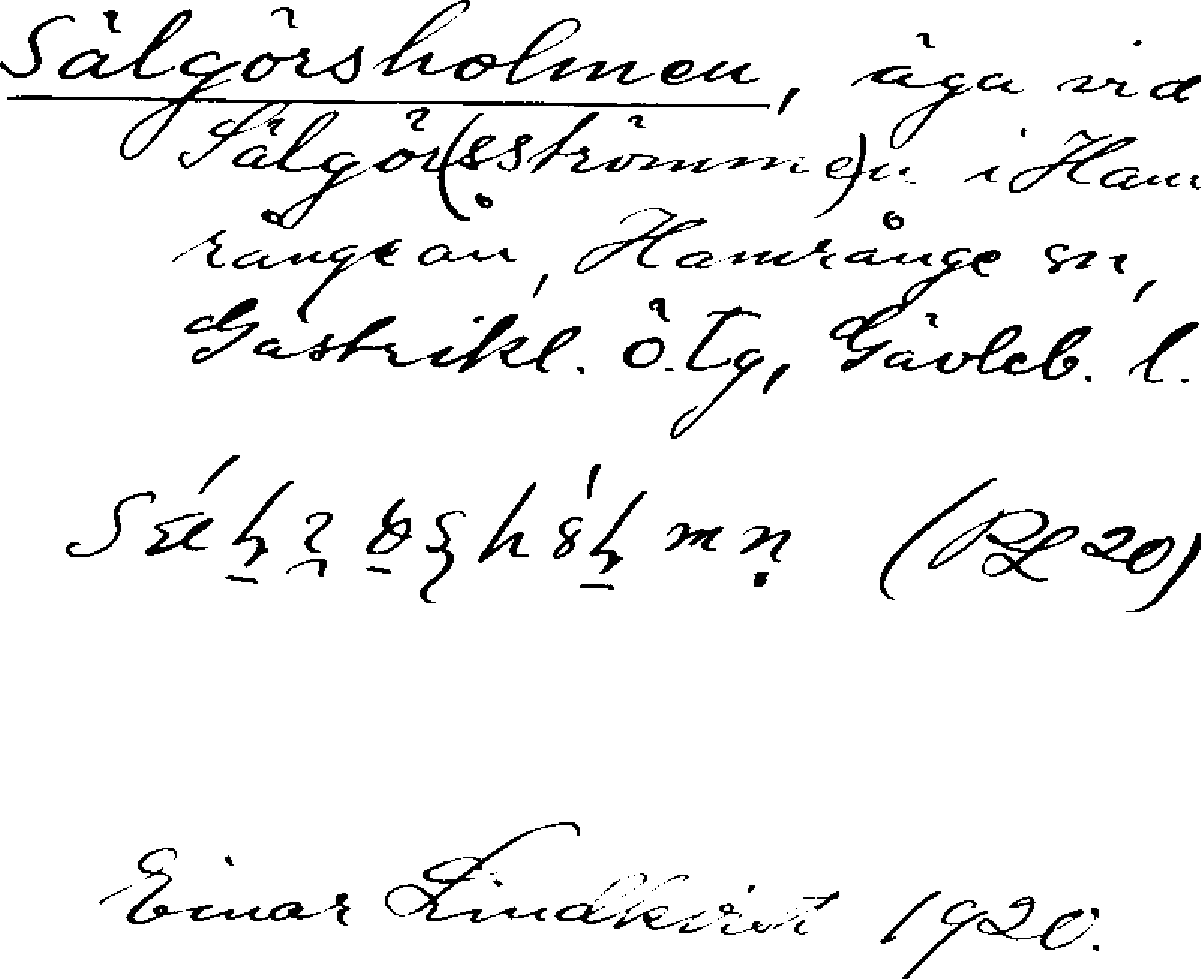 Sälgörsholmen, äga vid
Sälgör(sströmme)n i Ham
rångeån, Hamrånge sn,
Gästrikl. ö. tg, Gävleb. l.
(RL 20)
Einar Lindkvist 1920.